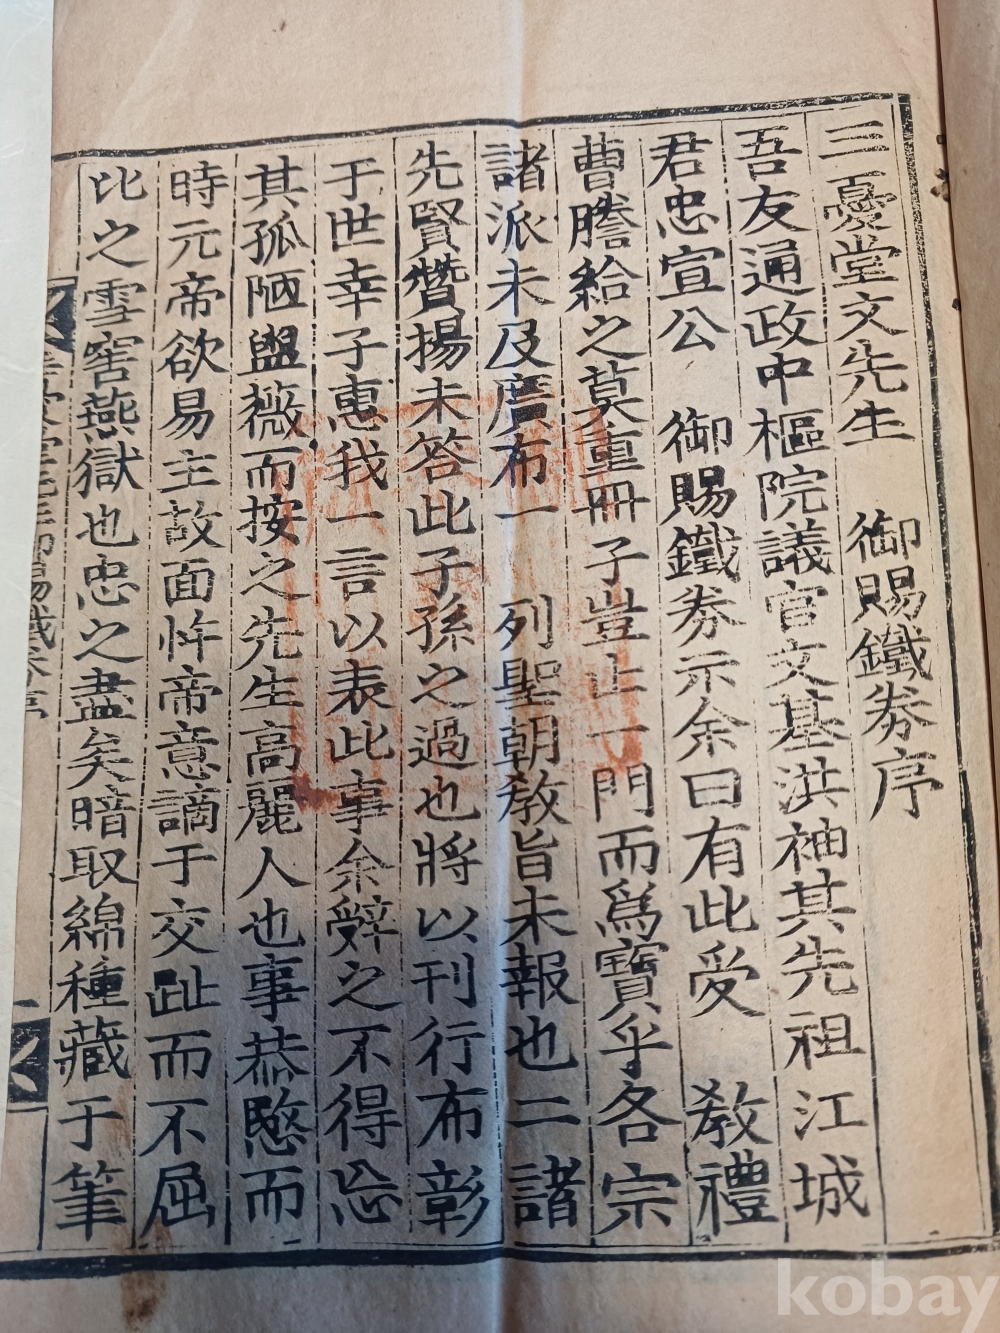 三憂堂文先生 御賜鐵券序
吾友通政中樞院議官文基洪袖其先祖江城
君忠宣公 御賜鐵券示余曰有此受 敎禮
曹謄給之莫重冊子豈止一門而爲寶乎各宗
諸派未及廣布一 列聖朝敎旨未報也二諸
先賢贊揚未答此子孫之過也將以刊行布彰
于世幸子惠我一言以表此事余辭之不得忘
其孤陋盥薇而按之先生高麗人也事恭愍而
時元帝欲易主故面忤帝意謫于交趾而不屈
比之雪窖燕獄也忠之盡矣暗取綿種藏于筆
kobay